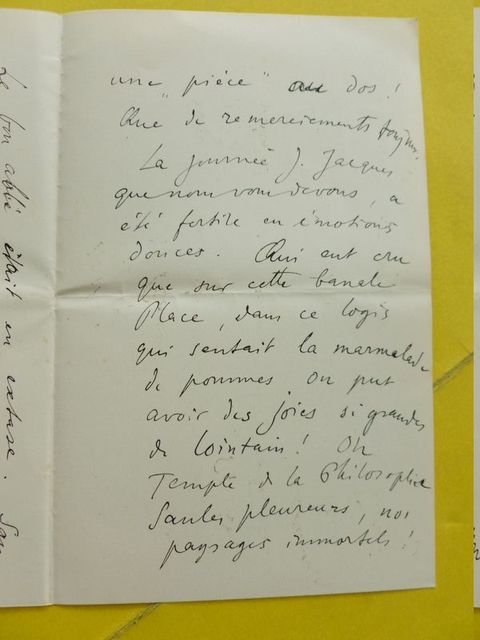 Le bon abbé était en extase. San
une "pièce" au dos !
Que de remerciements toujours.
La journée J. Jacques
que nous vous devons, a
été fertile en émotions
douces. Qui eut cru
que sur cette banale
Place, dans ce logis
qui sentait la marmelade
de pommes on put
avoir des joies si grandes
de lointain ! Oh
Temple de la Philosophie
Saules pleureurs, nos
paysages immortels !